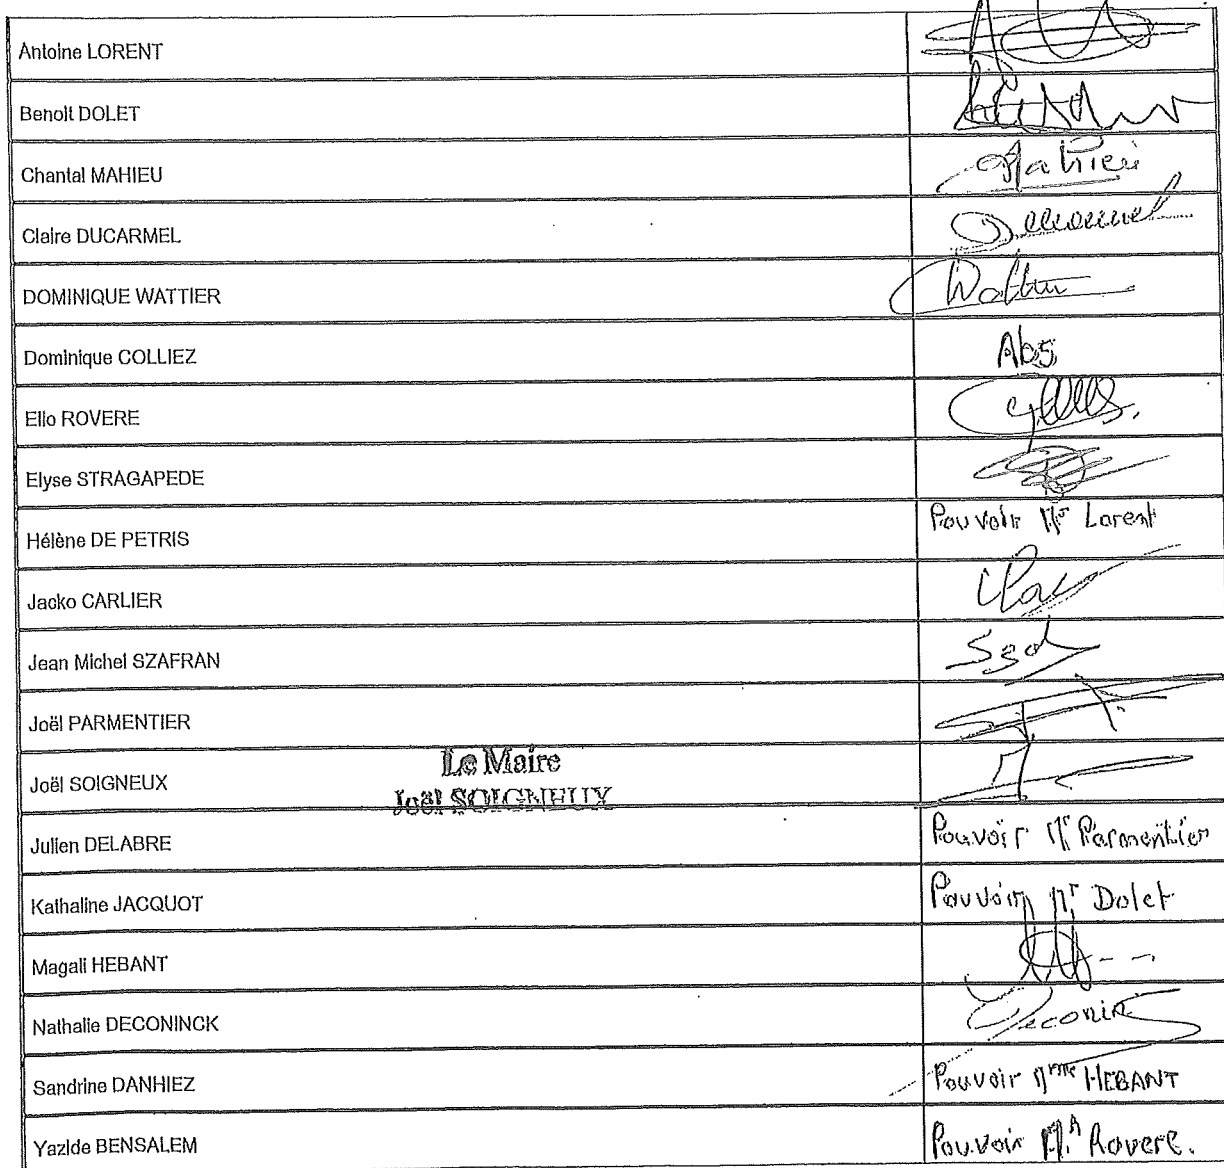 Antoine LORENT
Benoit DOLET
Chantal MAHIEU Mahieu
Claire DUCARMEL
DOMINIQUE WATTIER Wattier
Dominique COLLIEZ Abs
Elio ROVERE
Elyse STRAGAPEDE
Hélène DE PETRIS Pouvoir Mr Lorent
Jacko CARLIER
Jean Michel SZAFRAN
Joël PARMENTIER
Le Maire
Joël SOIGNEUX Joël SOIGNEUX
Julien DELABRE Pouvoir Mr Parmentier
Kathaline JACQUOT Pouvoir Mr Dolet
Magali HEBANT
Nathalie DECONINCK
Sandrine DANHIEZ Pouvoir Mme HEBANT
Yazide BENSALEM Pouvoir Mr Rovere.